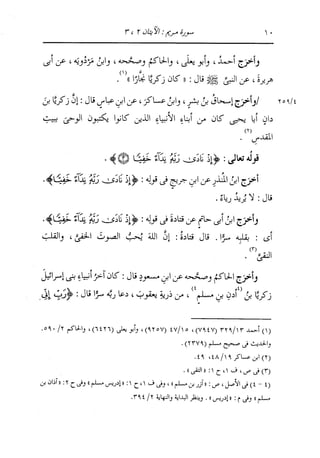 ١٠ سورة مريم : الآيتان ٢ ، ٣
وأخرج أحمدُ ، وأبو يعلى ، والحاكمُ وصحَّحه ، وابنُ مَرْدُويَه ، عن أبى
هريرةَ ، عن النبىِّ ﷺ قال : « كان زكريَّا نَجَّارًا » (١) .
٢٥٩/٤ /وأخرَج إسحاقُ بنُ بشرٍ ، وابنُ عساكرَ ، عن ابنِ عباسٍ قال : إنَّ زكريَّا بنَ
دانٍ أبا يحيى كان من أبناءِ الأنبياءِ الذين كانوا يكتُبون الوحىَ ببيتِ
المقدسِ (٢) .
قولُه تعالى : ﴿ إِذْ نَادَىٰ رَبَّهُۥ نِدَآءً خَفِيًّا ﴿٣﴾ ﴾ .
أخرَج ابنُ المنذرِ عن ابنِ جريجٍ فى قولِه : ﴿ إِذْ نَادَىٰ رَبَّهُۥ نِدَآءً خَفِيًّا ﴾ .
قال : لا يُريدُ رياءً .
وأخرَج ابنُ أبى حاتمٍ عن قتادةَ فى قولِه : ﴿ إِذْ نَادَىٰ رَبَّهُۥ نِدَآءً خَفِيًّا ﴾ .
أى : بقلبِه سرًّا . قال قتادةُ : إنَّ اللهَ يُحبُّ الصوتَ الخفىَّ ، والقلبَ
النقىَّ (٣) .
وأخرَج الحاكمُ وصحَّحه عن ابنِ مسعودٍ قال : كان آخرُ أنبياءِ بنى إسرائيلَ
زكريَّا بنُ (٤) أدنِ بنِ مسلمٍ (٤) ، من ذريةِ يعقوبَ ، دعا ربَّه سرًّا قال : ﴿ رَبِّ إِنِّى
(١) أحمد ٣٢٩/١٣ (٧٩٤٧) ، ١٥/ ٤٧ (٩٢٥٧) ، وأبو يعلى (٦٤٢٦) ، والحاكم ٢/ ٥٩٠ .
والحديث فى صحيح مسلم (٢٣٧٩) .
(٢) ابن عساكر ١٩/ ٤٨ ، ٤٩ .
(٣) فى ص ، ف ١ ، ح ١ : « التقى » .
(٤ - ٤) فى الأصل ، ص : « أزر بن مسلم » ، وفى ف ١ ، ح ١ : « إدريس مسلم » ، وفى ح ٢ : « أذان بن
مسلم » ، وفى م : « إدريس » . وينظر البداية والنهاية ٢/ ٣٩٤ .